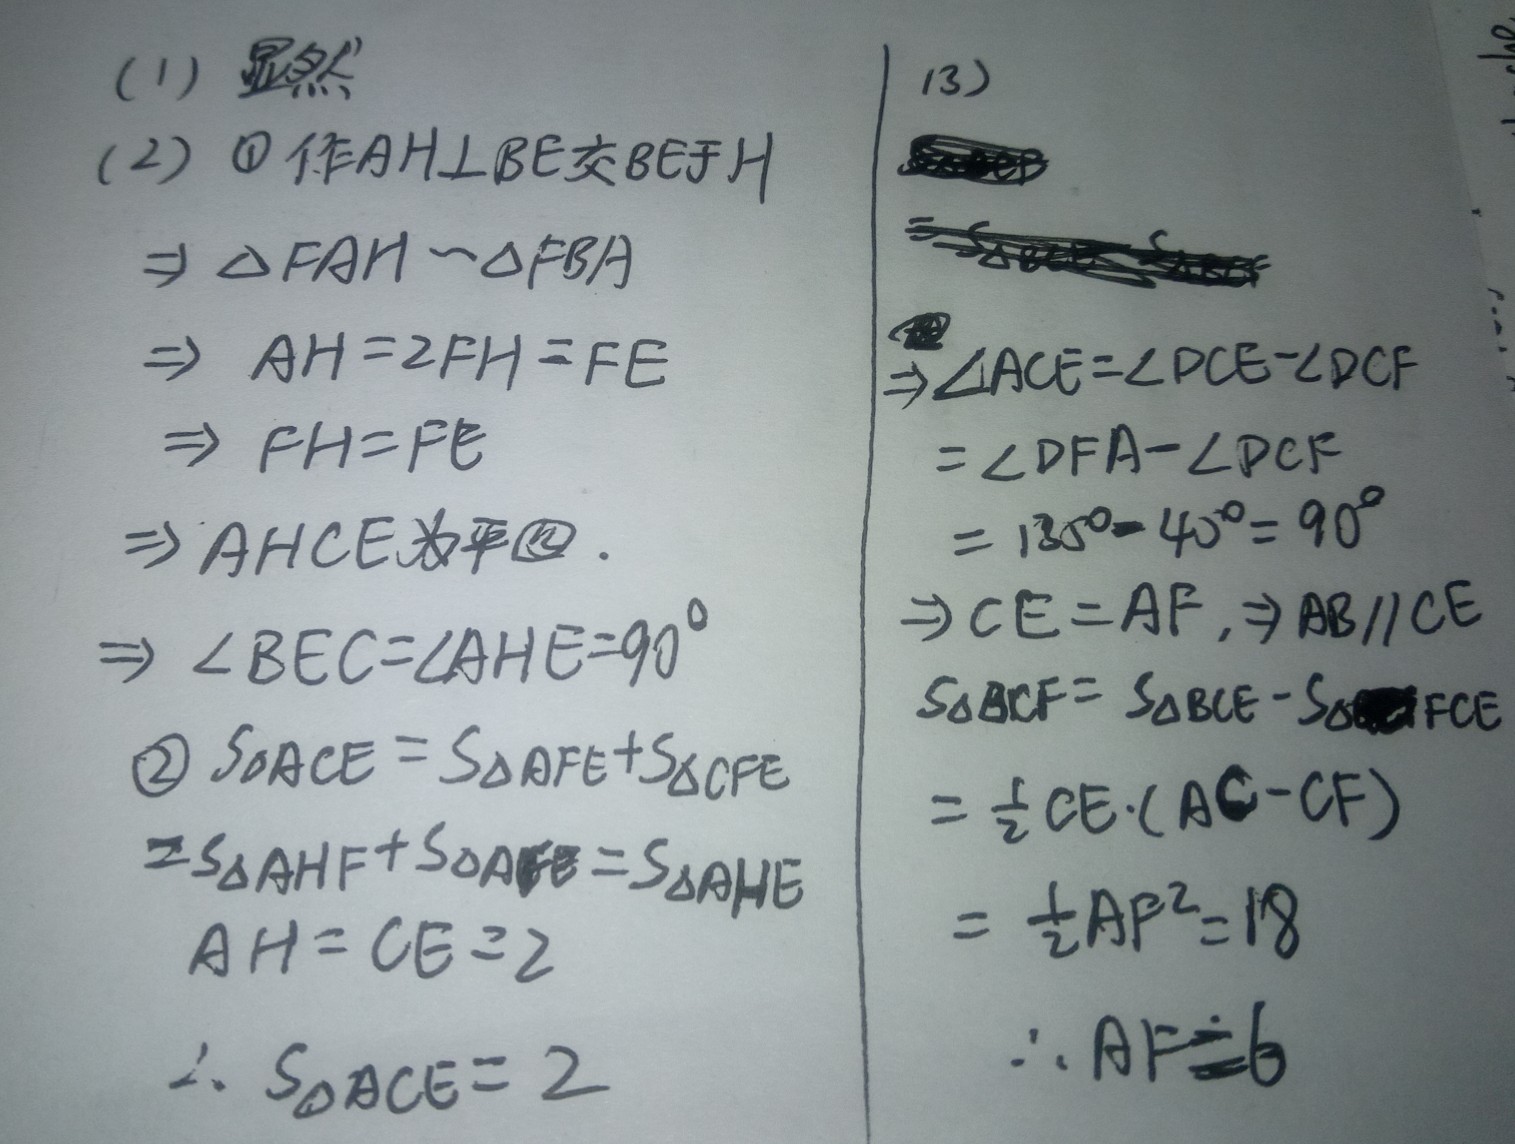 (1) 显然
(2) ① 作AH⊥BE交BE于H
⇒ △FAH ~ △FBA
⇒ AH=2FH=FE
⇒ FH=FE
⇒ AHCE为平四.
⇒ ∠BEC=∠AHE=90°
② S△ACE=S△AFE+S△CFE
=S△AHF+S△AFE=S△AHE
AH=CE=2
∴ S△ACE=2
13)
⇒ ∠ACE=∠DCE-∠DCF
=∠DFA-∠DCF
=135°-45°=90°
⇒ CE=AF,⇒AB//CE
S△BCF=S△BCE-S△FCE
=½CE·(AC-CF)
=½AF²=18
∴ AF=6